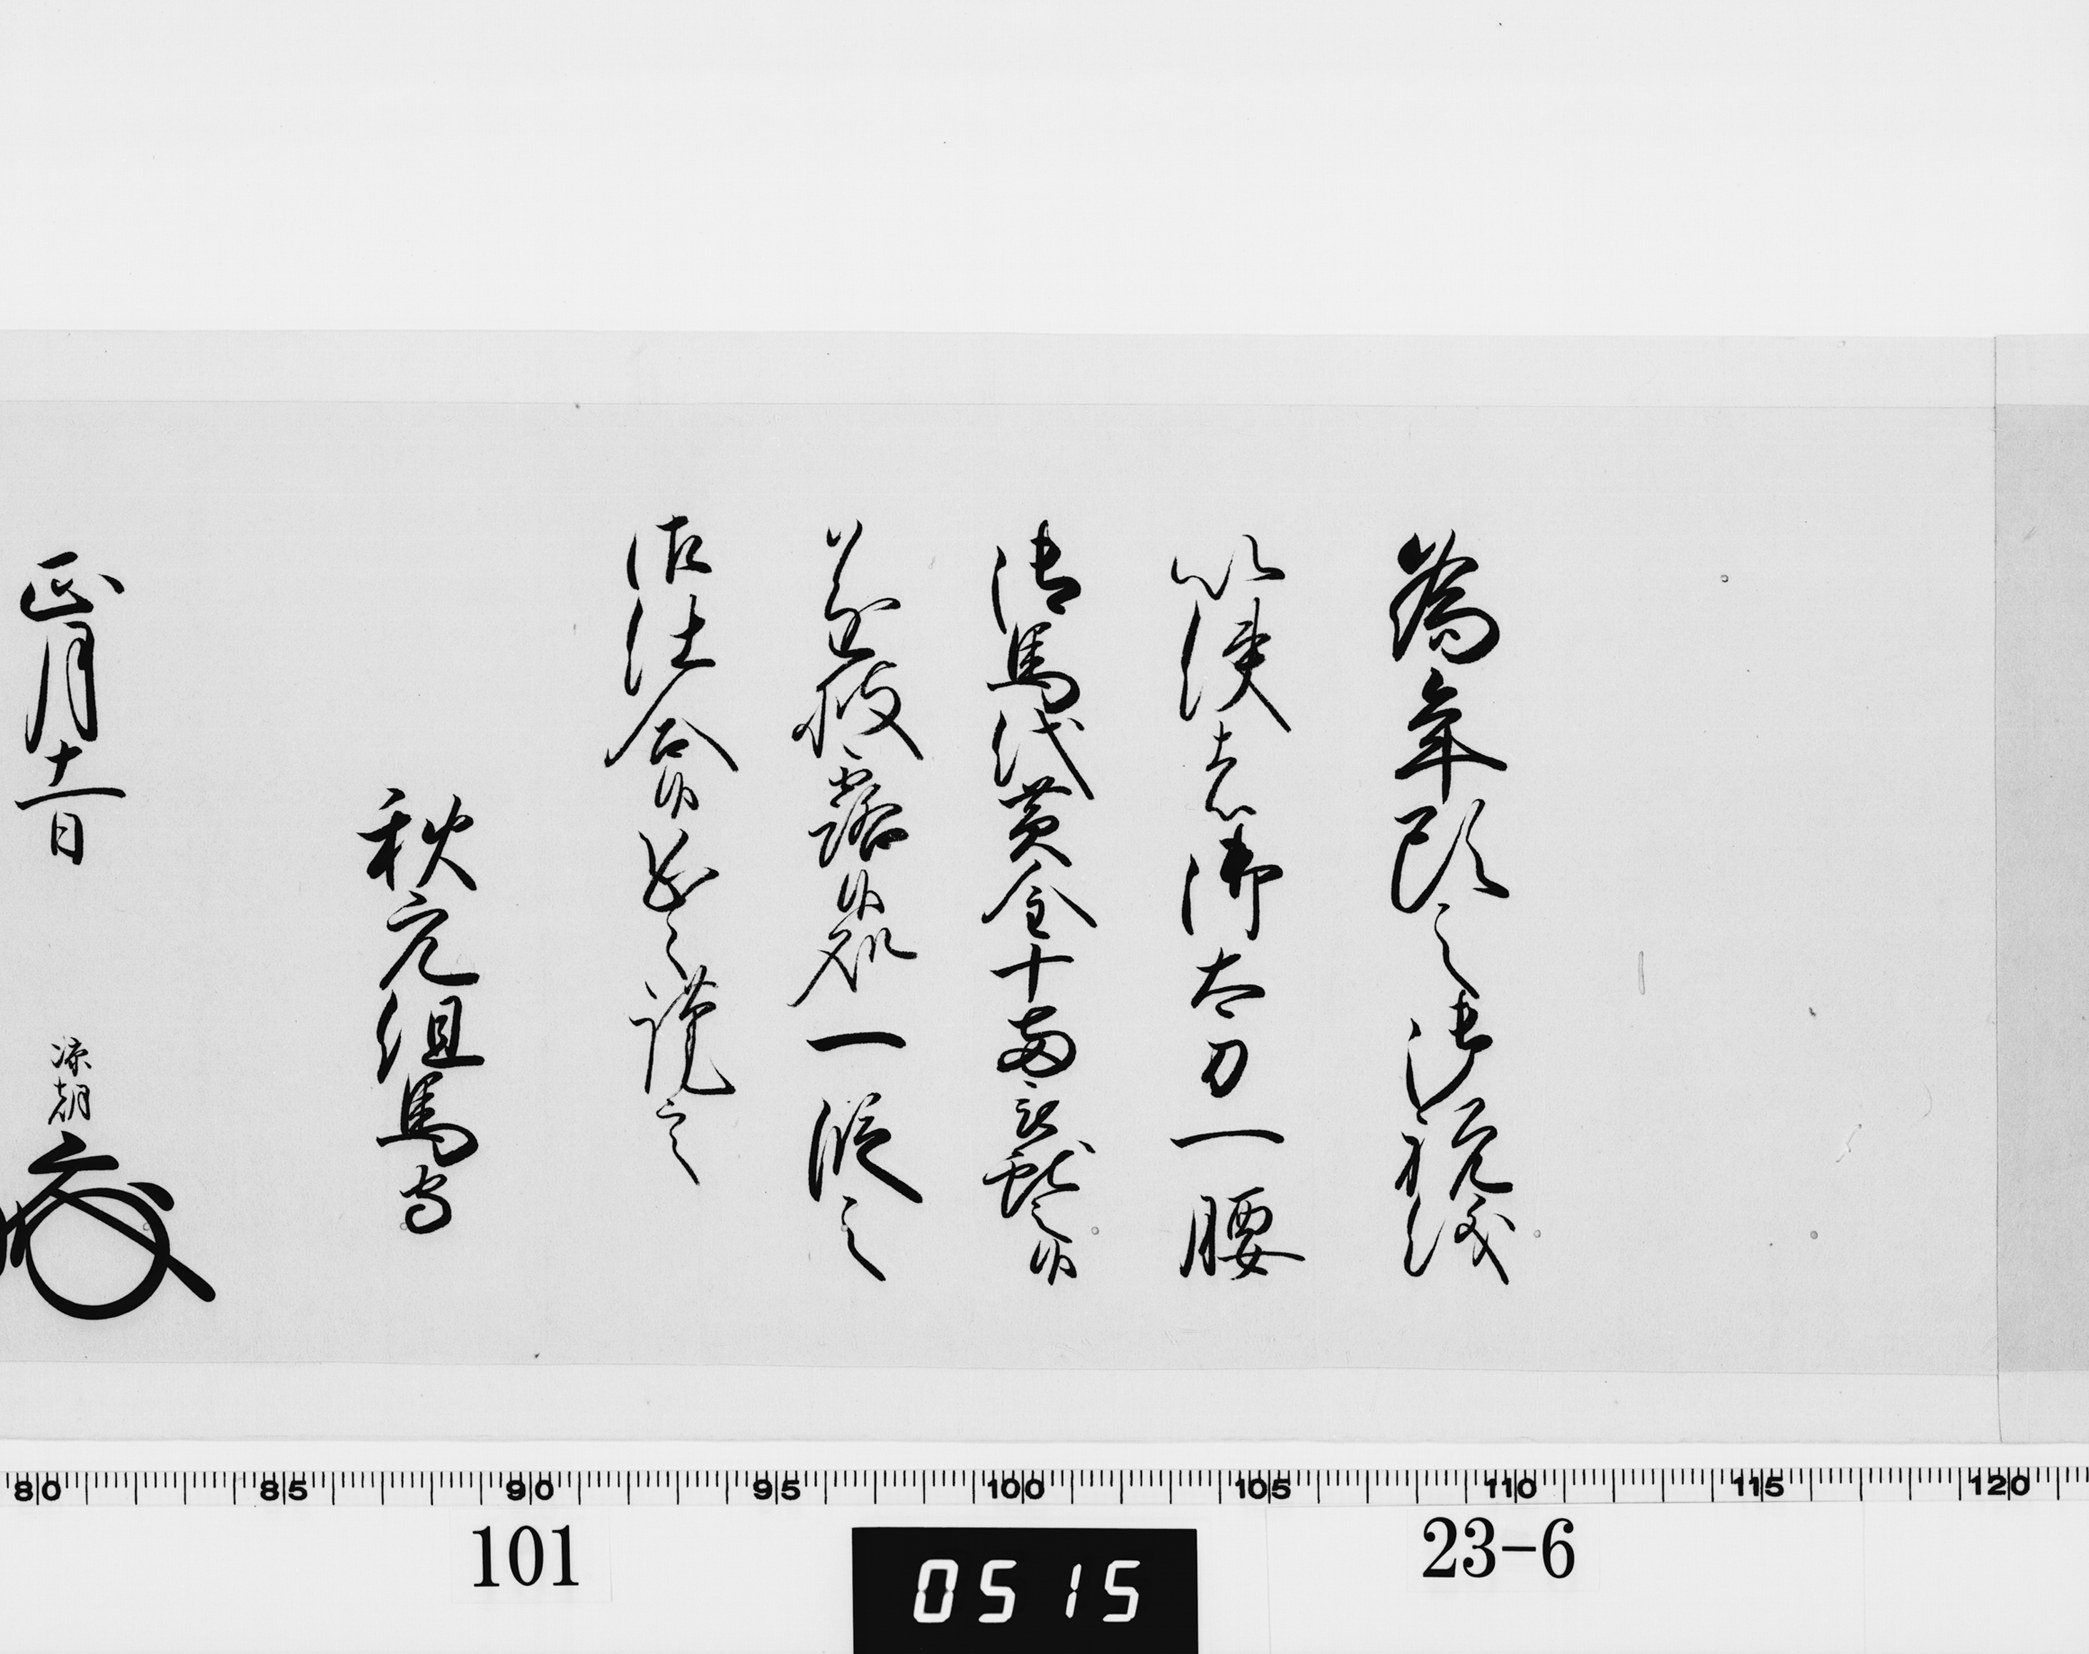 為年頭之御祝儀
以使者御太刀一腰
御馬代黄金十両被献之候
遂披露候処一段之
御仕合候恐々謹言
秋元但馬守
正月十一日 凉朝
80 85 90 95 100 105 110 115 120
101 0515 23-6